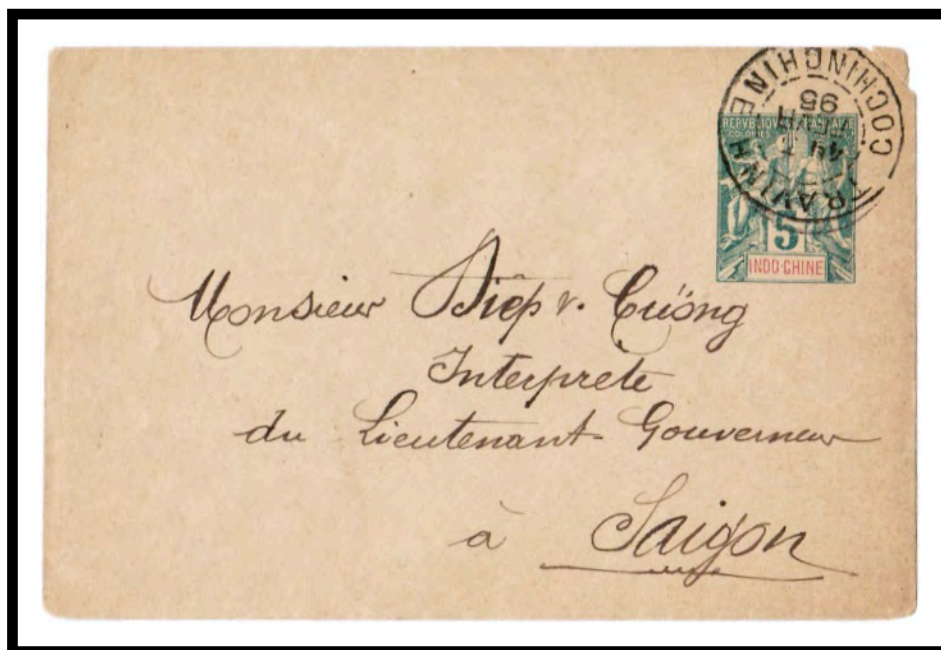 COCHINCHINE
95
TRAVINH
REPVBLIQUE FRANCAISE
COLONIES
5
INDO-CHINE
Monsieur Diêp v. Cüöng
Interprete
du Lieutenant-Gouverneur
à Saigon